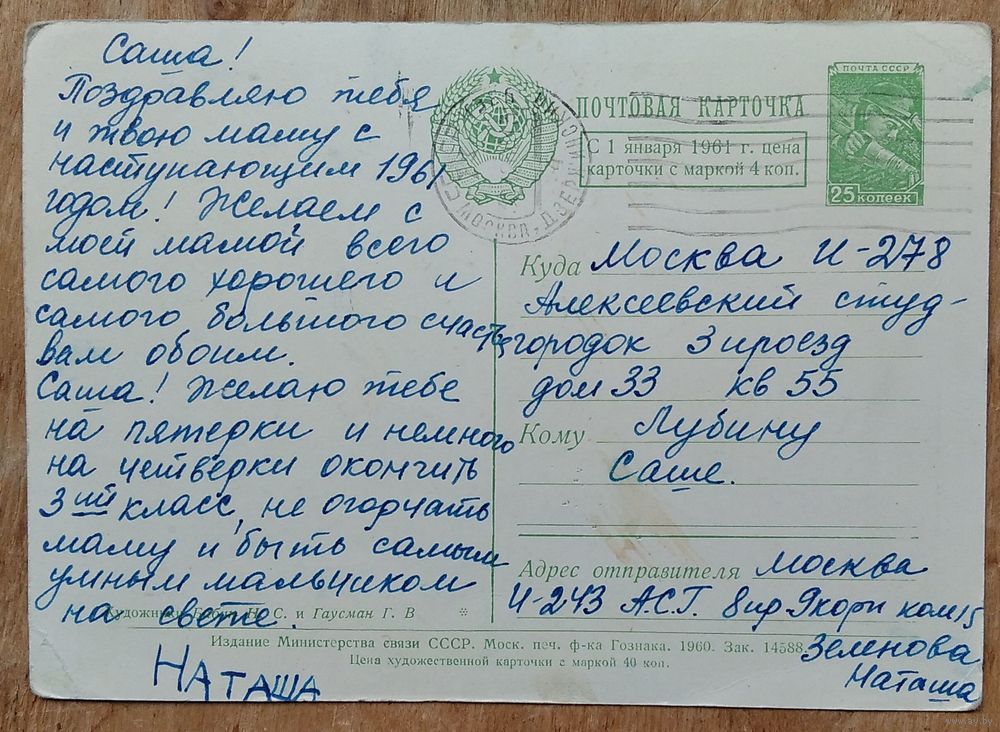 Саша!
Поздравляю тебя
и твою маму с
наступающим 1961
годом! Желаем с
моей мамой всего
самого хорошего и
самого большого счастья
вам обоим.
Саша! Желаю тебе
на пятерки и немного
на четверки окончить
3ий класс, не огорчать
маму и быть самым
умным мальчиком
на свете.
НАТАША
ПОЧТОВАЯ КАРТОЧКА
С 1 января 1961 г. цена
карточки с маркой 4 коп.
ПОЧТА СССР
25 копеек
МОСКВА
Куда Москва И-278
Алексеевский студ-
городок 3 проезд
дом 33 кв 55
Кому Лубину
Саше.
Адрес отправителя Москва
И-243 А.С.Г. ком 15
Зеленова
Наташа
Художники С. и Гаусман Г. В
Издание Министерства связи СССР. Моск. печ. ф-ка Гознака. 1960. Зак. 14588.
Цена художественной карточки с маркой 40 коп.
www.ay.by